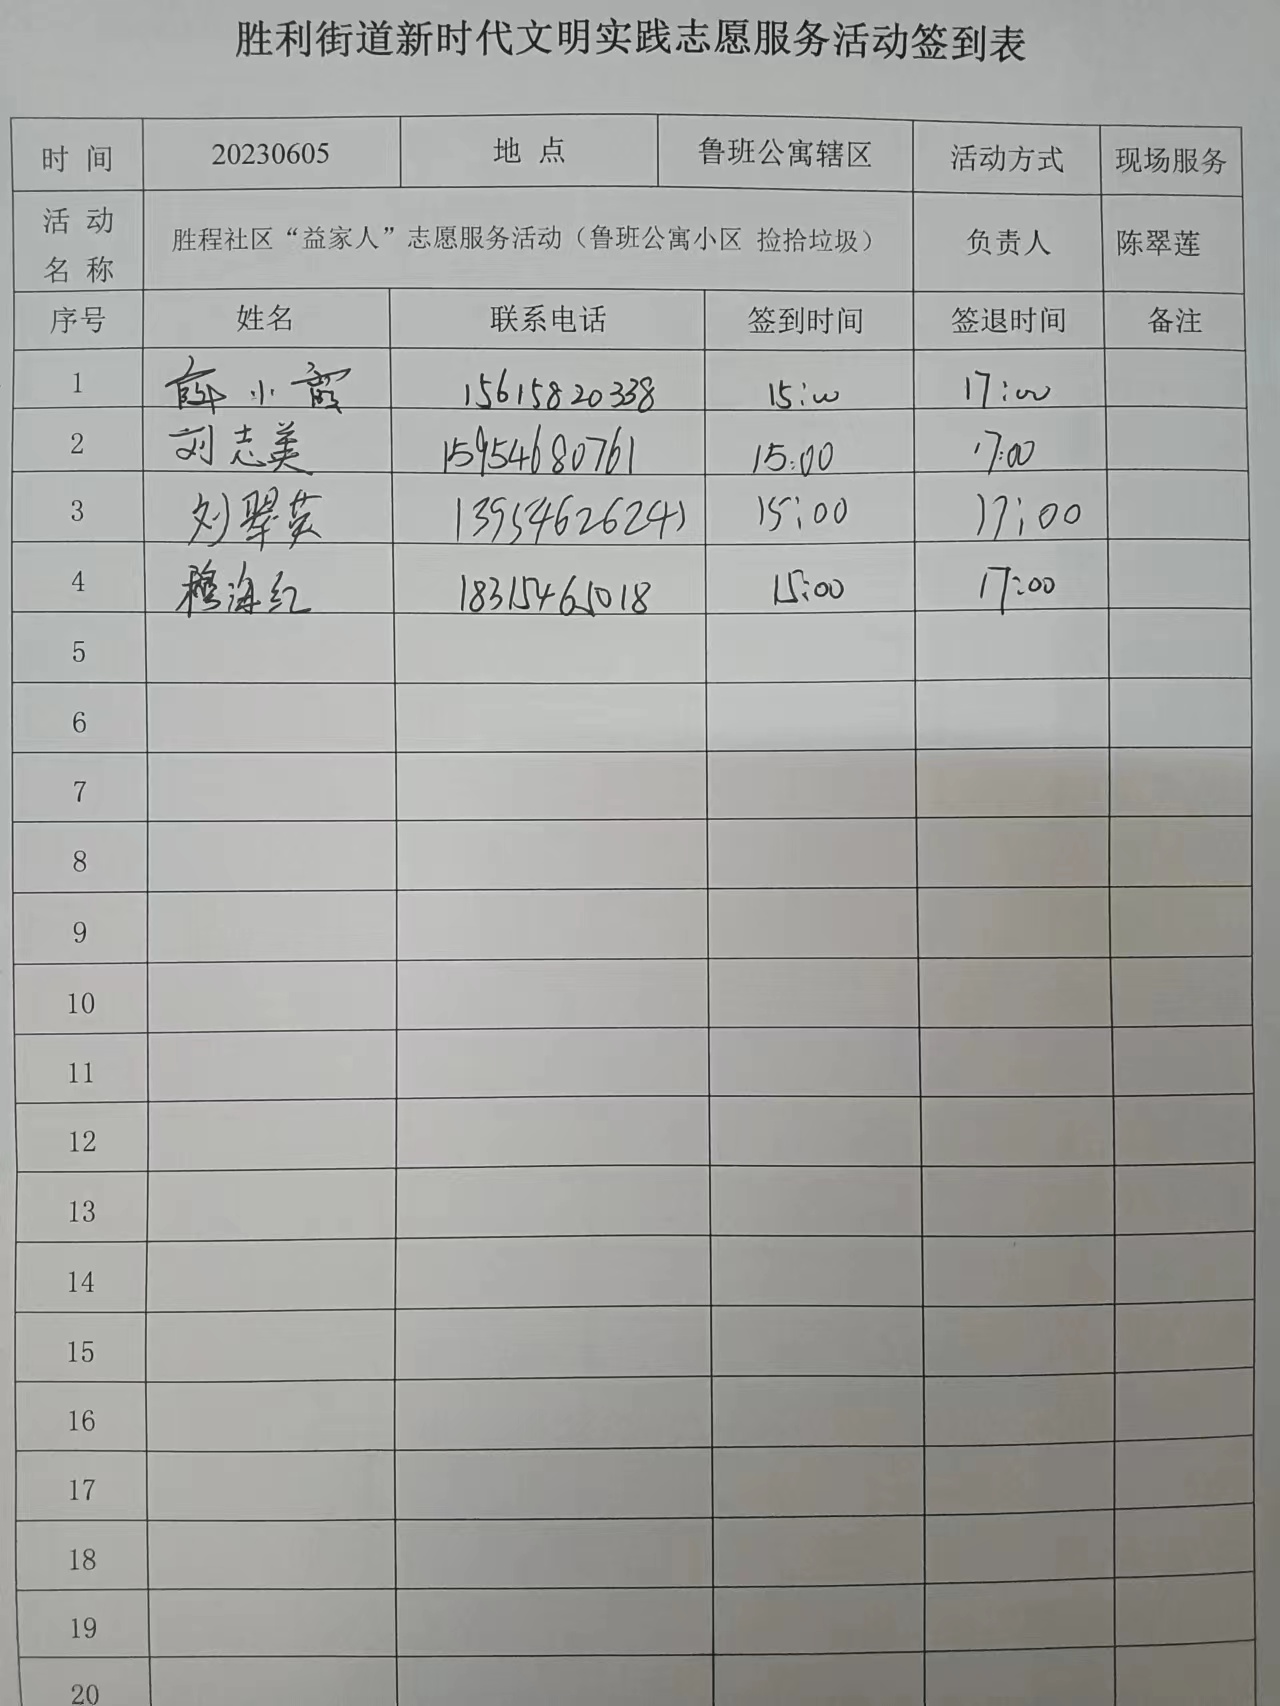 胜利街道新时代文明实践志愿服务活动签到表
时 间 20230605 地 点 鲁班公寓辖区 活动方式 现场服务
活 动 名 称 胜程社区“益家人”志愿服务活动（鲁班公寓小区 捡拾垃圾） 负责人 陈翠莲
序号 姓名 联系电话 签到时间 签退时间 备注
1 薛小霞 15615820338 15:00 17:00
2 刘志美 15954680761 15:00 17:00
3 刘翠英 13954626241 15:00 17:00
4 穆海红 18315465018 15:00 17:00
5
6
7
8
9
10
11
12
13
14
15
16
17
18
19
20